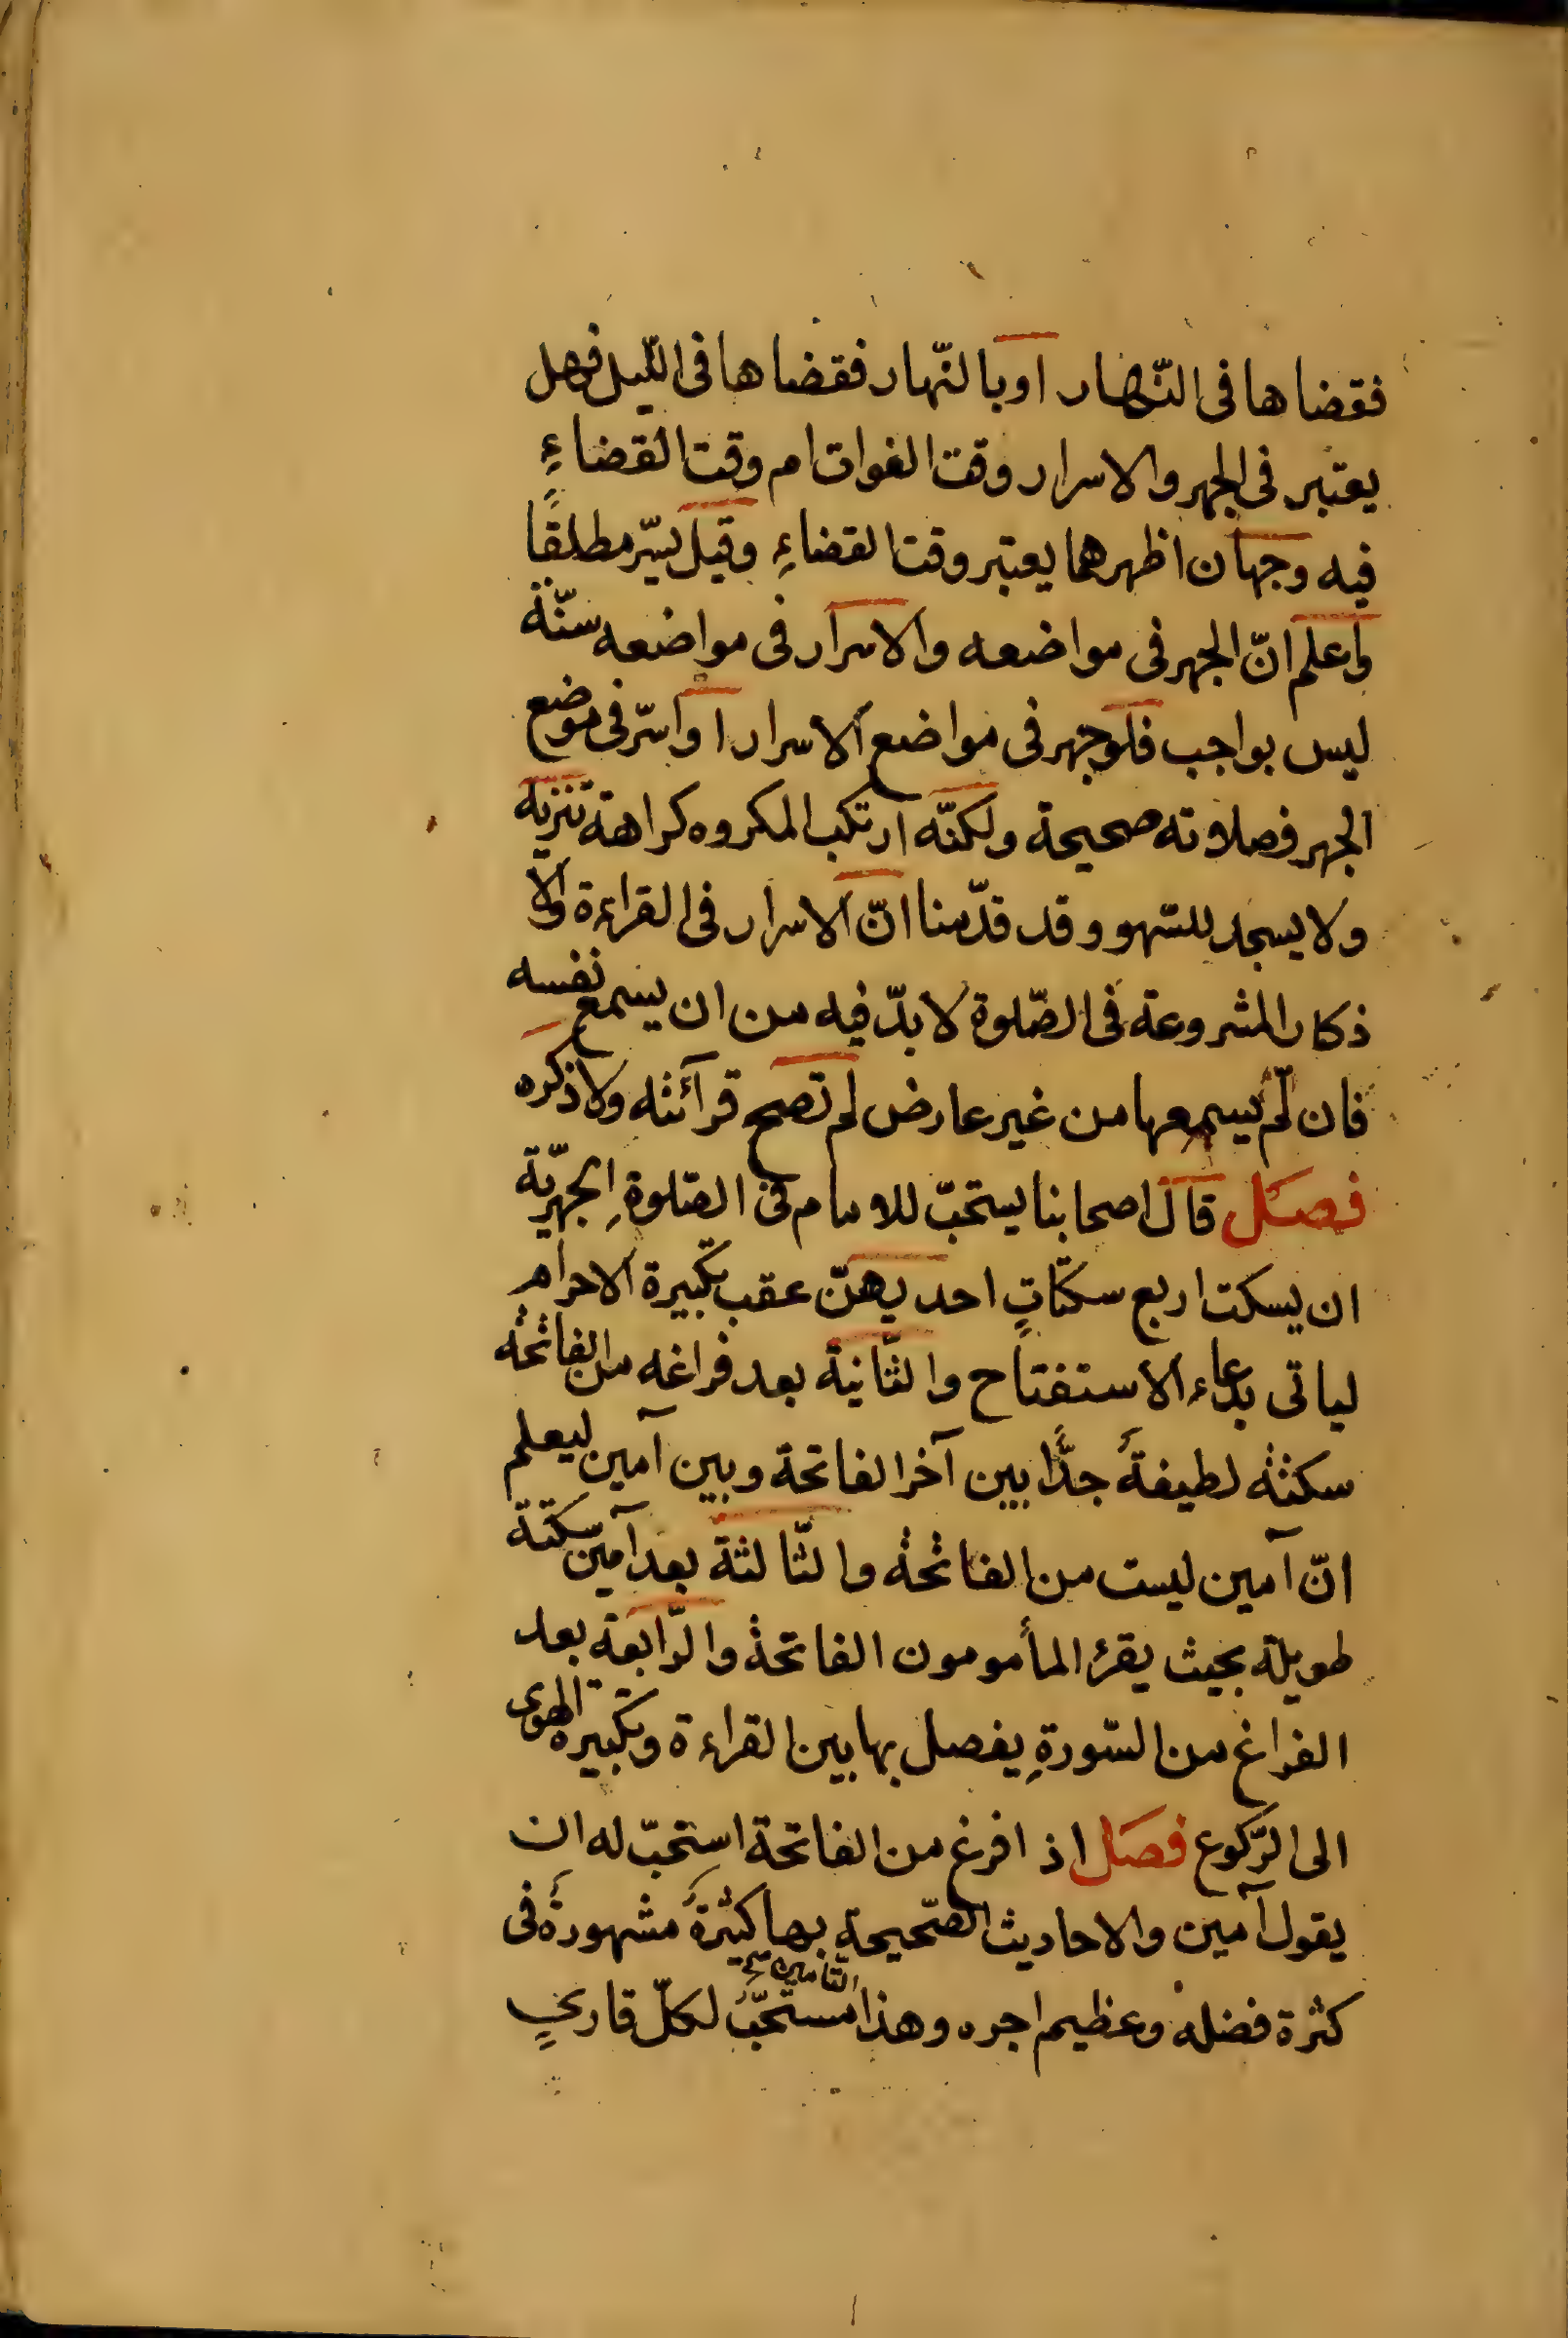 فقضاها فى النّهار اوبالنّهار فقضاها فى اللّيل فهل
يعتبر فى الجهر والاسرار وقت الفوات ام وقت القضاءِ
فيه وجهان اظهرهما يعتبر وقت القضاءِ وقيل يسّر مطلقًا
واعلم انّ الجهر فى مواضعه والاسرار فى مواضعه سنّة
ليس بواجب فلوجهر فى مواضع الاسرار اواسّر فى موضع
الجهر فصلاوته صحيحة ولكنّه ارتكب المكروه كراهة تنزيه
ولا يسجد للسّهو وقد قدّمنا انّ الاسرار فى القراءة والا
ذكار المشروعة فى الصّلوة لا بدّ فيه من ان يسمع نفسه
فان لّم يسمعها من غير عارض لم تصح قرآئته ولا ذكره
فصل قال اصحابنا يستحبّ للامام فى الصّلوةِ الجهريّة
ان يسكت اربع سكتاتٍ احديهنّ عقب تكبيرة الاحرام
لياتى بدعاء الاستفتاح والثّانية بعد فراغه من الفاتحة
سكتة لطيفةً جدًّا بين آخر الفاتحة وبين آمين ليعلم
انّ آمين ليست من الفاتحة والثّالثة بعد آمين سكتة
طويلة بحيث يقرئ المأمومون الفاتحة والرّابعة بعد
الفراغ من السّورةِ يفصل بها بين القراءة وتكبيرة الهوى
الى الرّكوع فصل اذا فرغ من الفاتحة استحبّ له ان
يقول آمين والاحاديث الصّحيحة بها كثيرةً مشهورةً فى
كثرة فضله وعظيم اجره وهذا التّامين مستحبٌّ لكلّ قارئٍ